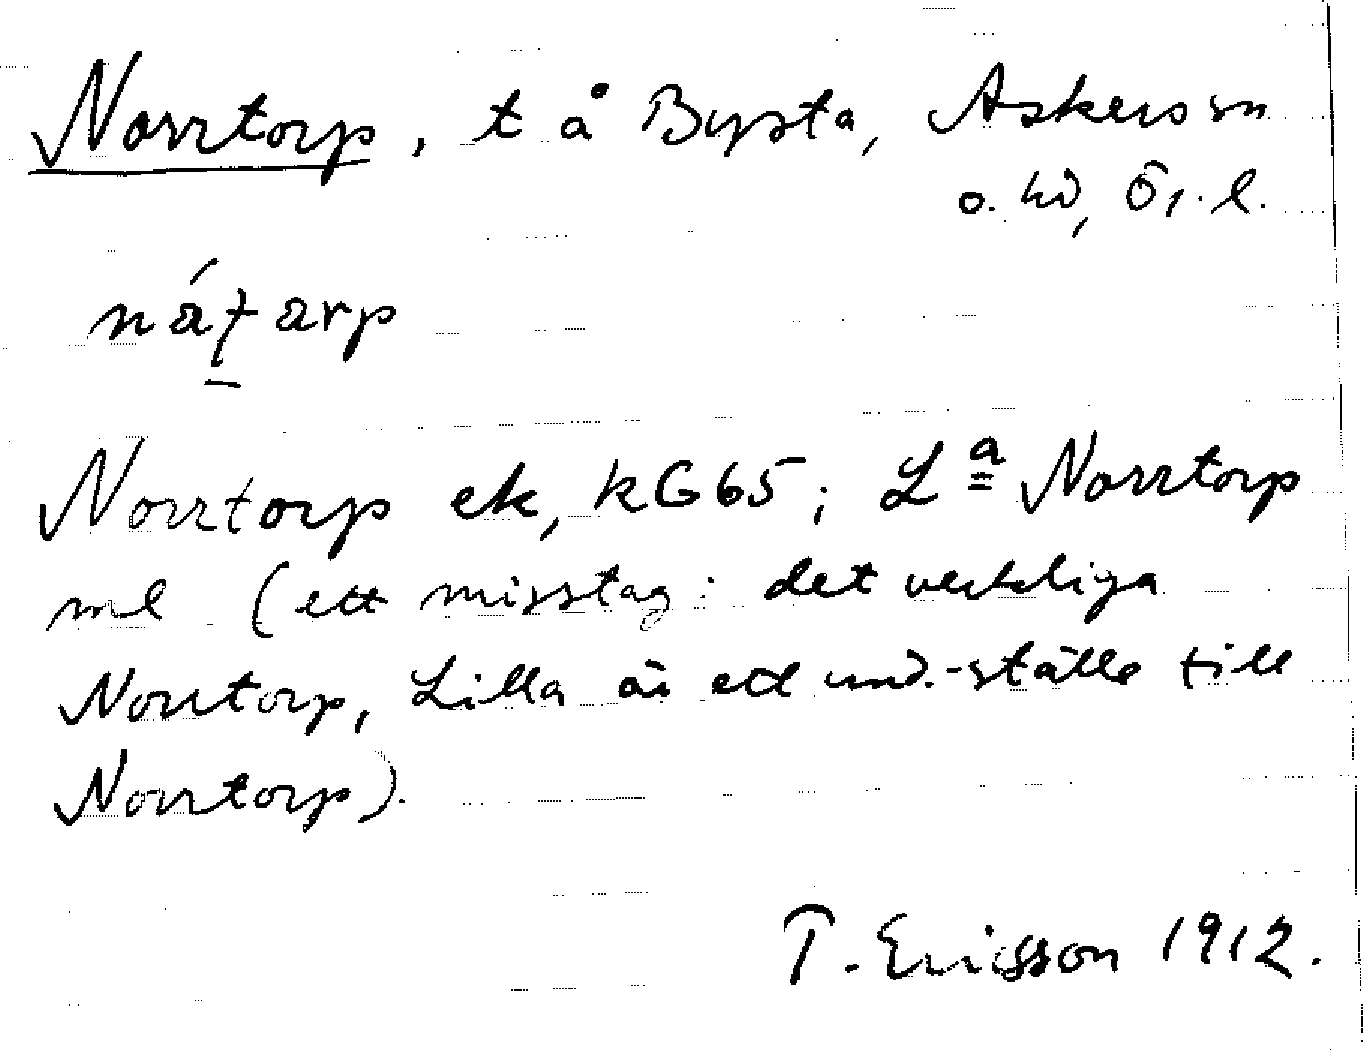 Norrtorp, t å Bysta, Askers sn
o. hd, Ör. l.
Norrtorp ek, kG65; L<sup>a</sup> Norrtorp
ml (ett misstag: det verkliga
Norrtorp, Lilla är ett und.-ställe till
Norrtorp).
T. Ericsson 1912.